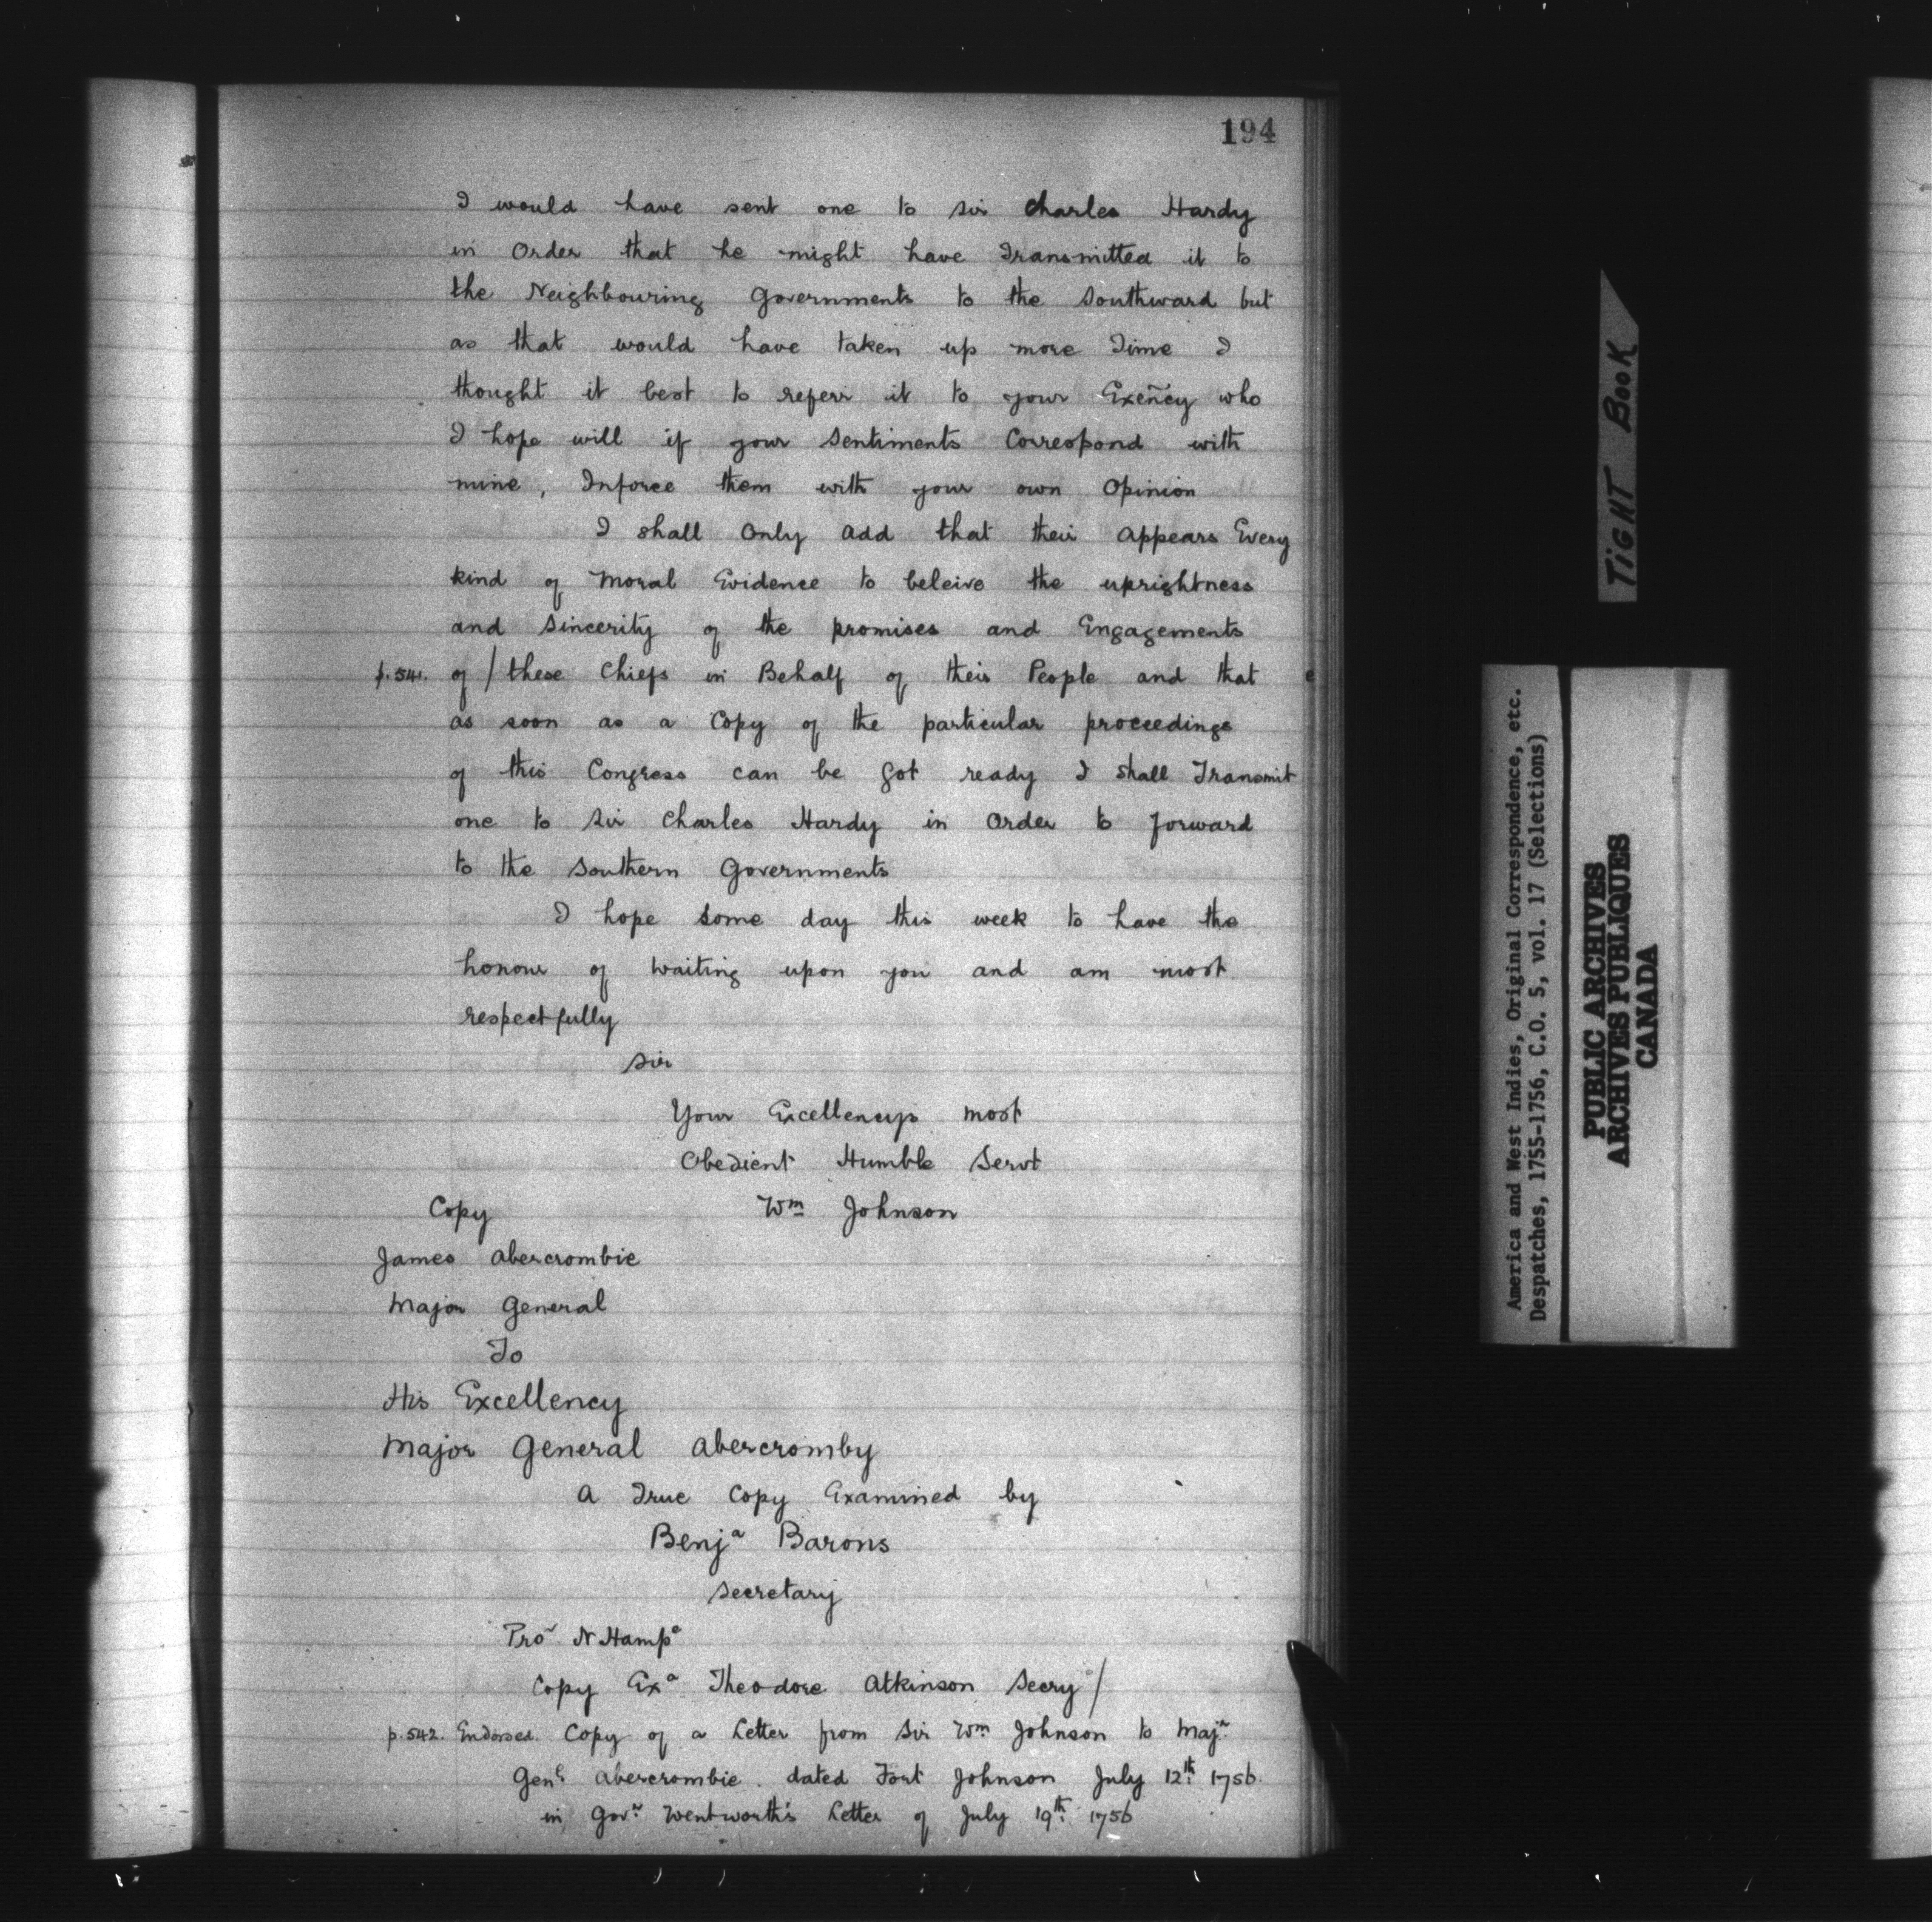 194
I would have sent one to Sir Charles Hardy
in Order that he might have Transmitted it to
the Neighbouring Governments to the Southward but
as that would have taken up more Time I
thought it best to referr it to your Exeñcy who
I hope will if your Sentiments Correspond with
mine, Inforce them with your own Opinion
I shall Only add that their Appears Every
kind of Moral Evidence to beleive the uprightness
and Sincerity of the promises and Engagements
p.541. of / these Chiefs in Behalf of their People and that
as soon as a Copy of the particular proceedings
of this Congress can be got ready I shall Transmit
one to Sir Charles Hardy in Order to forward
to the Southern Governments
I hope some day this week to have the
honour of waiting upon you and am most
respectfully
Sir
Your Excellencys most
Obedient Humble Servt
Copy Wm Johnson
James Abercrombie
Major General
To
His Excellency
Major General Abercromby
A True Copy Examined by
Benja Barons
Secretary
Pro N Hampe
Copy Exa Theodore Atkinson Secry /
p.542. Endorsed. Copy of a Letter from Sir Wm Johnson to Majr
Genl Abercrombie. dated Fort Johnson July 12th 1756.
in Govr Wentworth's Letter of July 19th 1756
TIGHT BOOK
America and West Indies, Original Correspondence, etc.
Despatches, 1755-1756, C.O. 5, vol. 17 (Selections)
PUBLIC ARCHIVES
ARCHIVES PUBLIQUES
CANADA